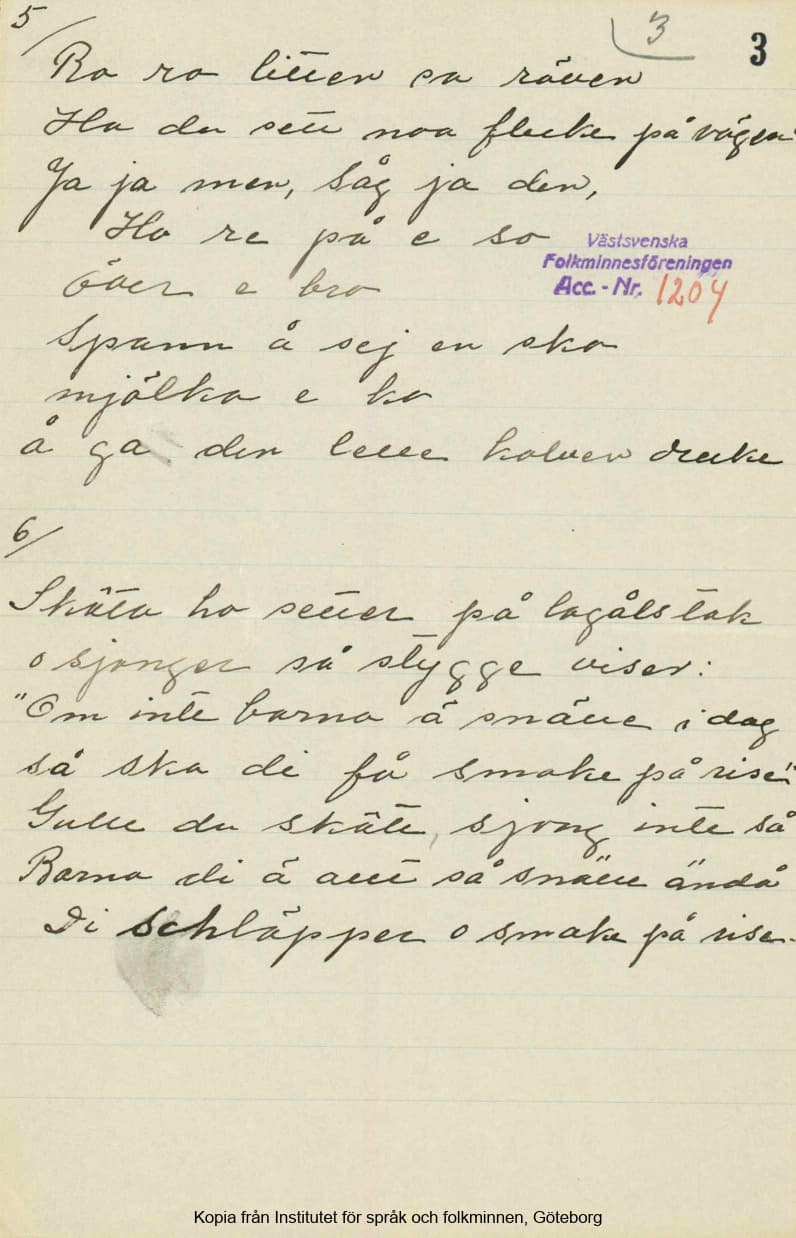 5/
3
3
Ro ro litten sa räven
Ha du sett noa flecke på vägen
Ja ja men, såg ja den,
Ho re på e so
över e bro
Spann å sej en sko
mjölka e ko
å ga den lelle kalven decke
Västsvenska
Folkminnesföreningen
Acc.-Nr. 1204
6/
Skäta ho setter på lagåls tak
o sjonger så stygge viser:
"Om inte barna ä snälle i dag
så ska di få smake på rise"
Gulle du skäte, sjong inte så
Barna di ä allt så snälle ändå
Di schläpper o smake på rise.
Kopia från Institutet för språk och folkminnen, Göteborg